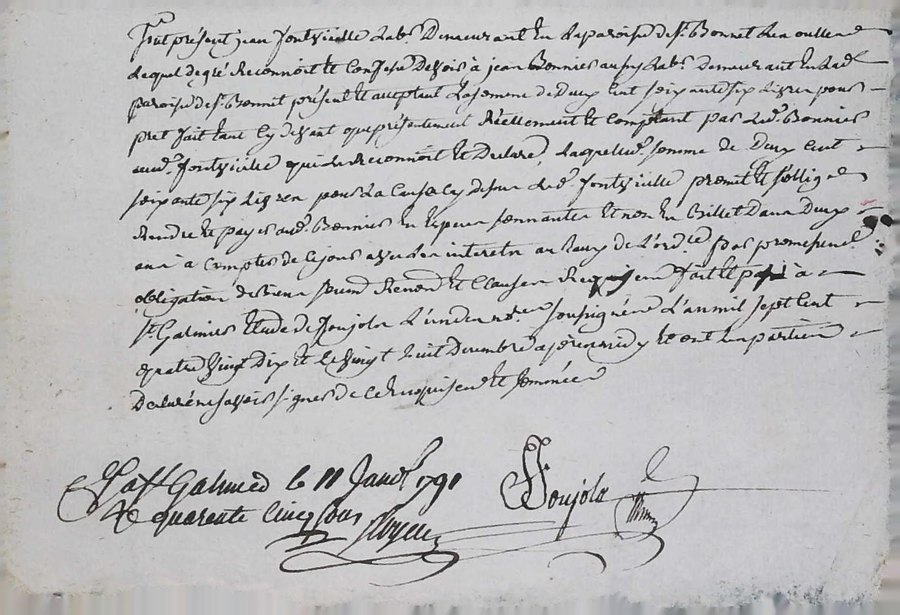 Fut présent jean fontvielle Lab.r Demeurant En La paroisse de St. Bonnet Les oulles
Lequel de gré Reconnoit et Confesse Devoir à jean Bonnier aussy Lab.r Demeurant En Lad.e
paroisse de St. Bonnet présent et acceptant La somme de Deux Cent soixante six Livres pour
pret fait tant Cy devant que présentement Réellement et Comptant par Led. Bonnier
aud. fontvielle qui Le Reconnoit et Declare, Laquelle somme de Deux Cent
soixante six Livres pour La Cause Cy dessus Led. fontvielle promet et s'oblige
Rendre et payer aud. Bonnier En Espece sonnantes et non En Billet Dans Deux
ans à Compter de Ce jour avec Les interets au Taux de L'ord.ce par promesse
obligation de biens soumis. Renon. et Clauses Requises fait et passé à
St. Galmier Etude de Joujola L'un des no.res soussignés L'an mil sept Cent
quatre Vingt Dix et Le Vingt huit Decembre apres midy et ont Les parties
Declaré ne savoir signer de Ce Enquises et somées
à St Galmier le 11 Janv.r 1791
quarente cinq sous
Joujola